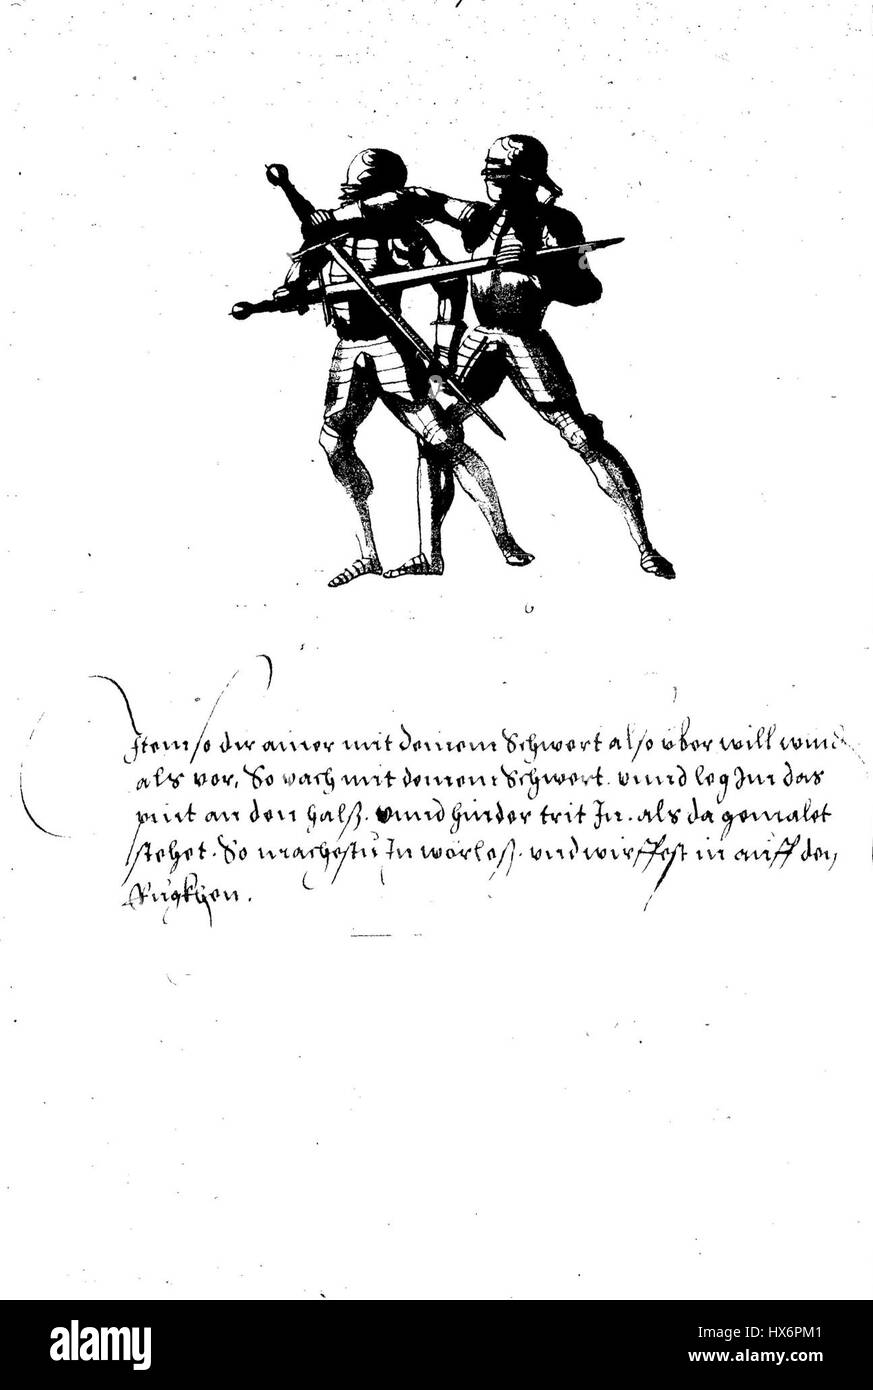 Item so dir ainer mit deinem Schwert also über will wind
als vor. So vach mit deinem Schwert. vnnd leg Im das
pint an den halß. vnnd hinder trit In. als da gemalet
stehet. So machestu In worloß. vnd wirffest in auff den
Rugkhen.
a
a
alamy
Image ID: HX6PM1
www.alamy.com